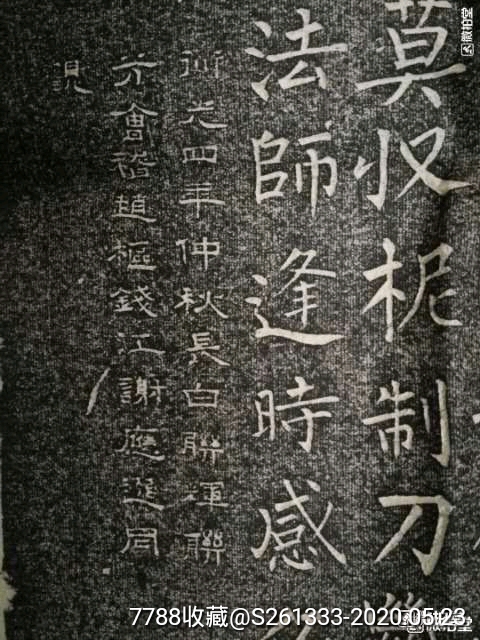 莫収柅制刀
法師逢時感
光四年仲秋長白聯聯
會稽趙樞錢江謝應同
微拍堂
7788收藏@S261333-2020.05.23.
微拍堂